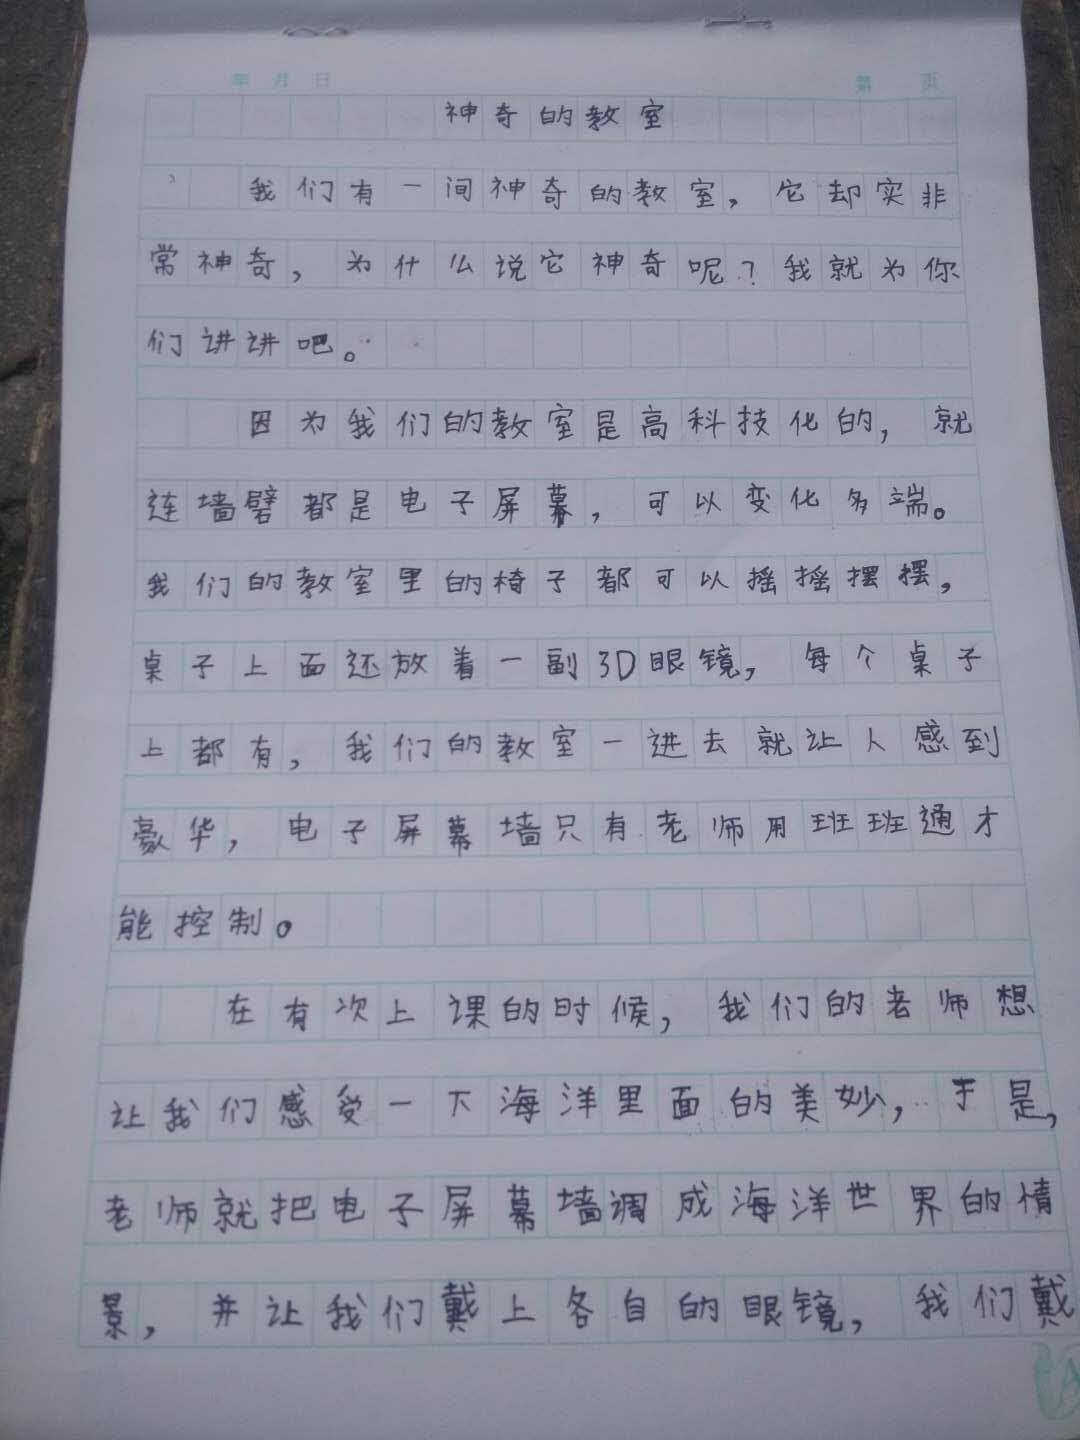 年 月 日 第 页
神奇的教室
我们有一间神奇的教室，它却实非
常神奇，为什么说它神奇呢？我就为你
们讲讲吧。
因为我们的教室是高科技化的，就
连墙壁都是电子屏幕，可以变化多端。
我们的教室里的椅子都可以摇摇摆摆，
桌子上面还放着一副3D眼镜，每个桌子
上都有，我们的教室一进去就让人感到
豪华，电子屏幕墙只有老师用班班通才
能控制。
在有次上课的时候，我们的老师想
让我们感受一下海洋里面的美妙，于是，
老师就把电子屏幕墙调成海洋世界的情
景，并让我们戴上各自的眼镜，我们戴